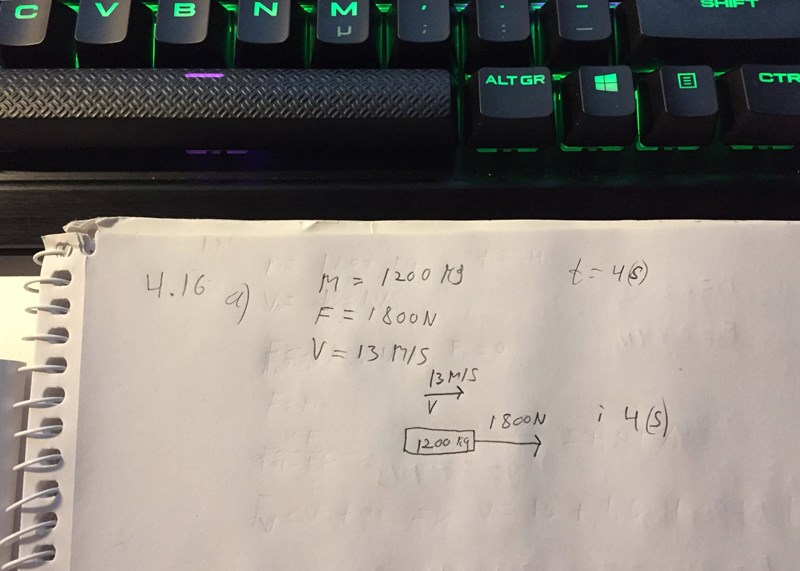 C V B N M ; : _
µ , . -
SHIFT
ALT GR CTR
4.16 a) M = 1200 Kg t = 4(s)
F = 1800N
V = 13 M/S
13 M/S
V
1800N i 4(s)
1200 Kg